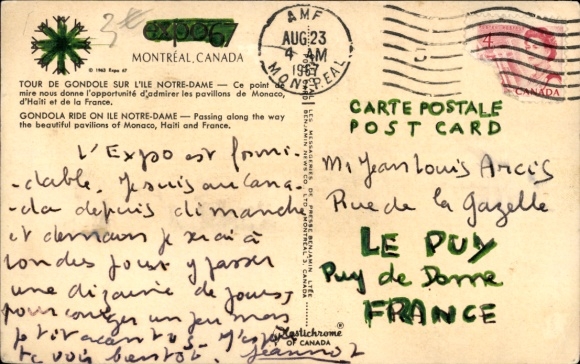 expo67
MONTRÉAL, CANADA
© 1963 Expo 67
TOUR DE GONDOLE SUR L'ILE NOTRE-DAME — Ce point de
mire nous donne l'opportunité d'admirer les pavillons de Monaco,
d'Haïti et de la France.
GONDOLA RIDE ON ILE NOTRE-DAME — Passing along the way
the beautiful pavilions of Monaco, Haiti and France.
L'Expo est formi-
-dable. Je suis au Cana-
-da depuis dimanche
et demain je serai à
Londres pour y passer
une dizaine de jours,
pour corriger un peu mes
te voir bientôt. Jeannot
LES MESSAGERIES DE PRESSE BENJAMIN LTÉE
BENJAMIN NEWS CO. LTD. MONTREAL 3, CANADA
Plastichrome®
OF CANADA
AMF
AUG 23
4 AM
1967
MONTREAL
4
CANADA
CARTE POSTALE
POST CARD
M. Jean Louis Arcis
Rue de la Gazelle
LE PUY
Puy de Dome
FRANCE